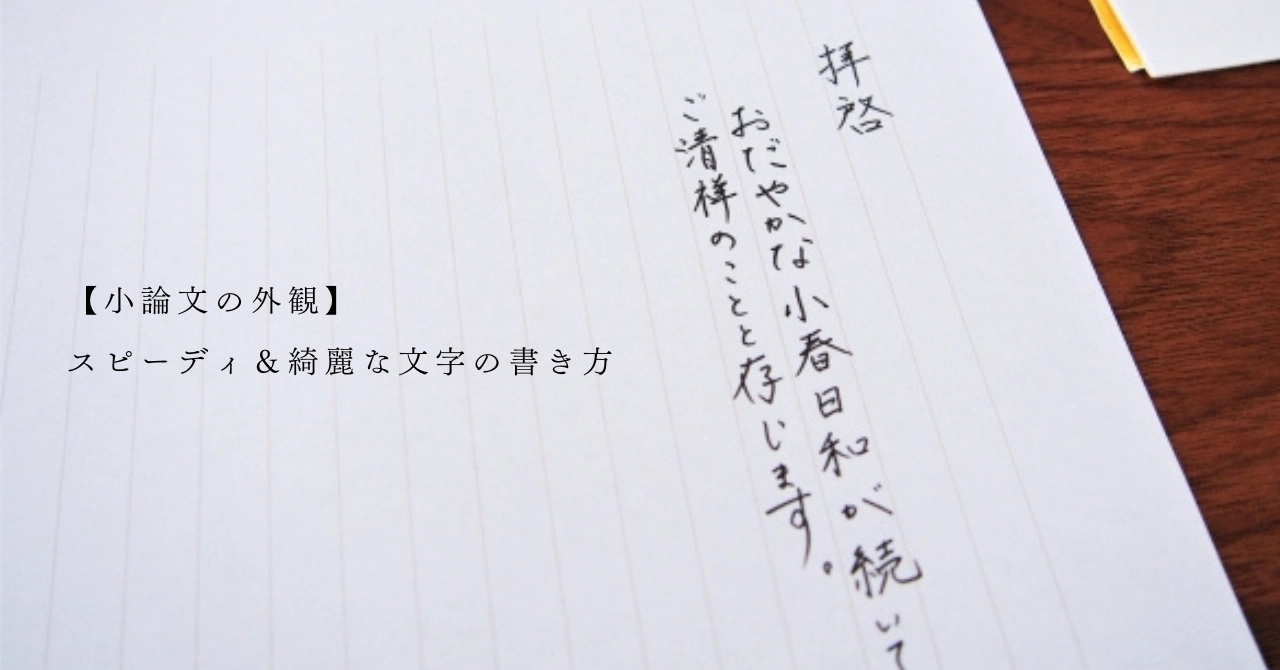 【小論文の外観】
スピーディ&綺麗な文字の書き方
拝啓
おだやかな小春日和が続いて
ご清祥のことと存じます。